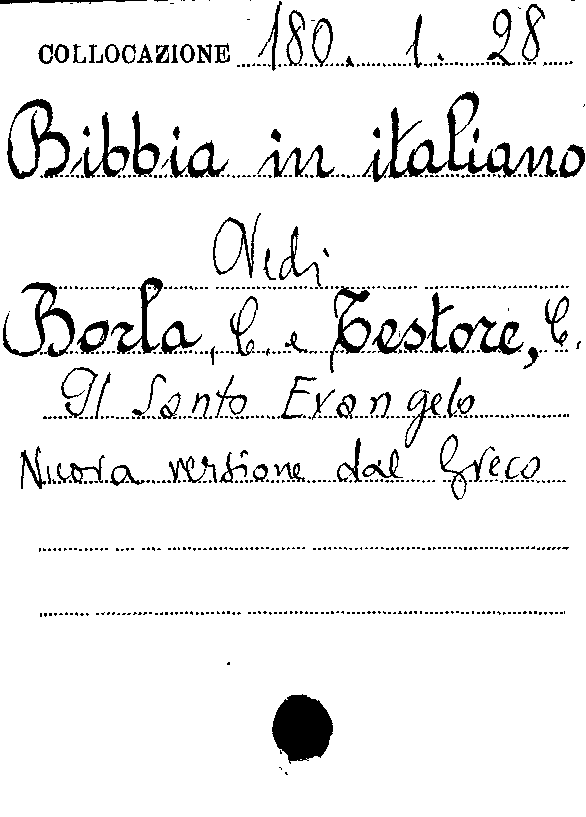 COLLOCAZIONE 180. 1. 28
Bibbia in italiano
Vedi
Borla, C. e Testore, C.
Il Santo Evangelo
Nuova versione dal Greco